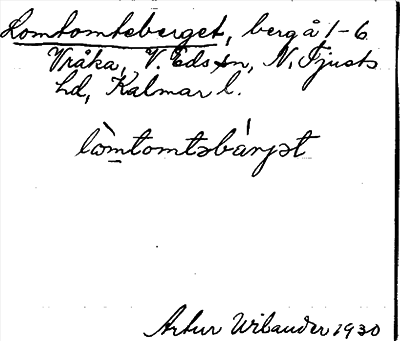 Lomtomteberget, berg å 1-6
Vråka, V. Eds sn, N. Tjusts
hd, Kalmar l.
lòmtomtsbárjət
Artur Wilander 1930